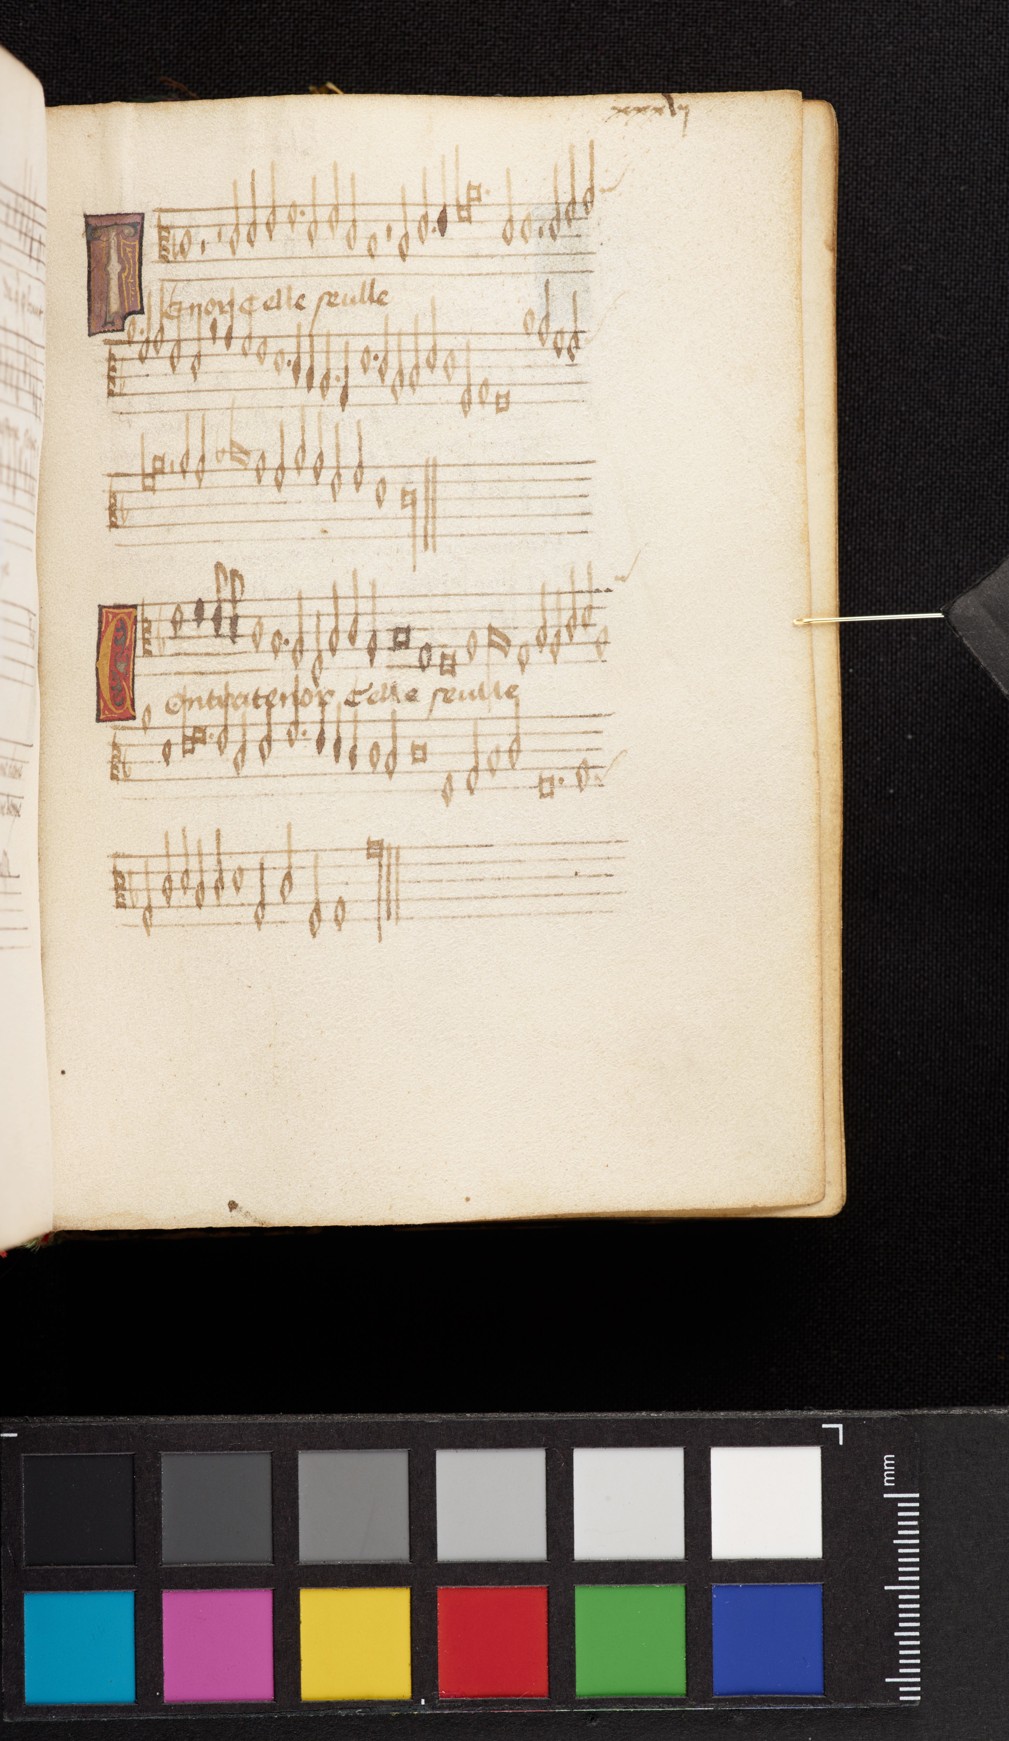 xxxvij
Tenor Celle seulle
Contratenor Celle seulle
mm